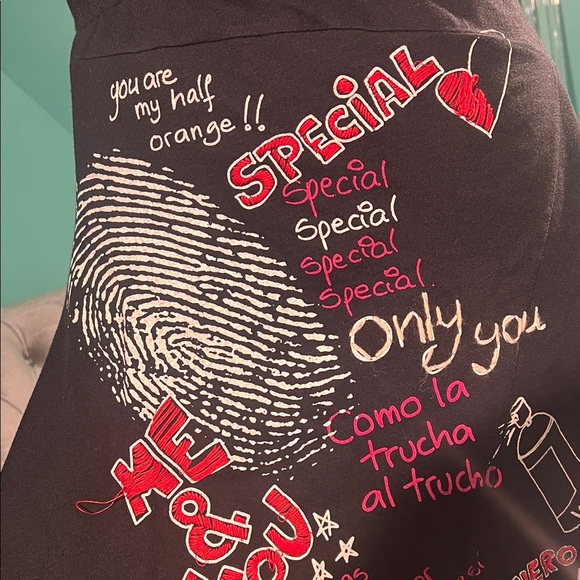 you are
my half
orange!!
SPECiAL
Special
Special
Special
Special.
Only you
Como la
trucha
al trucho
ME
&
YOU